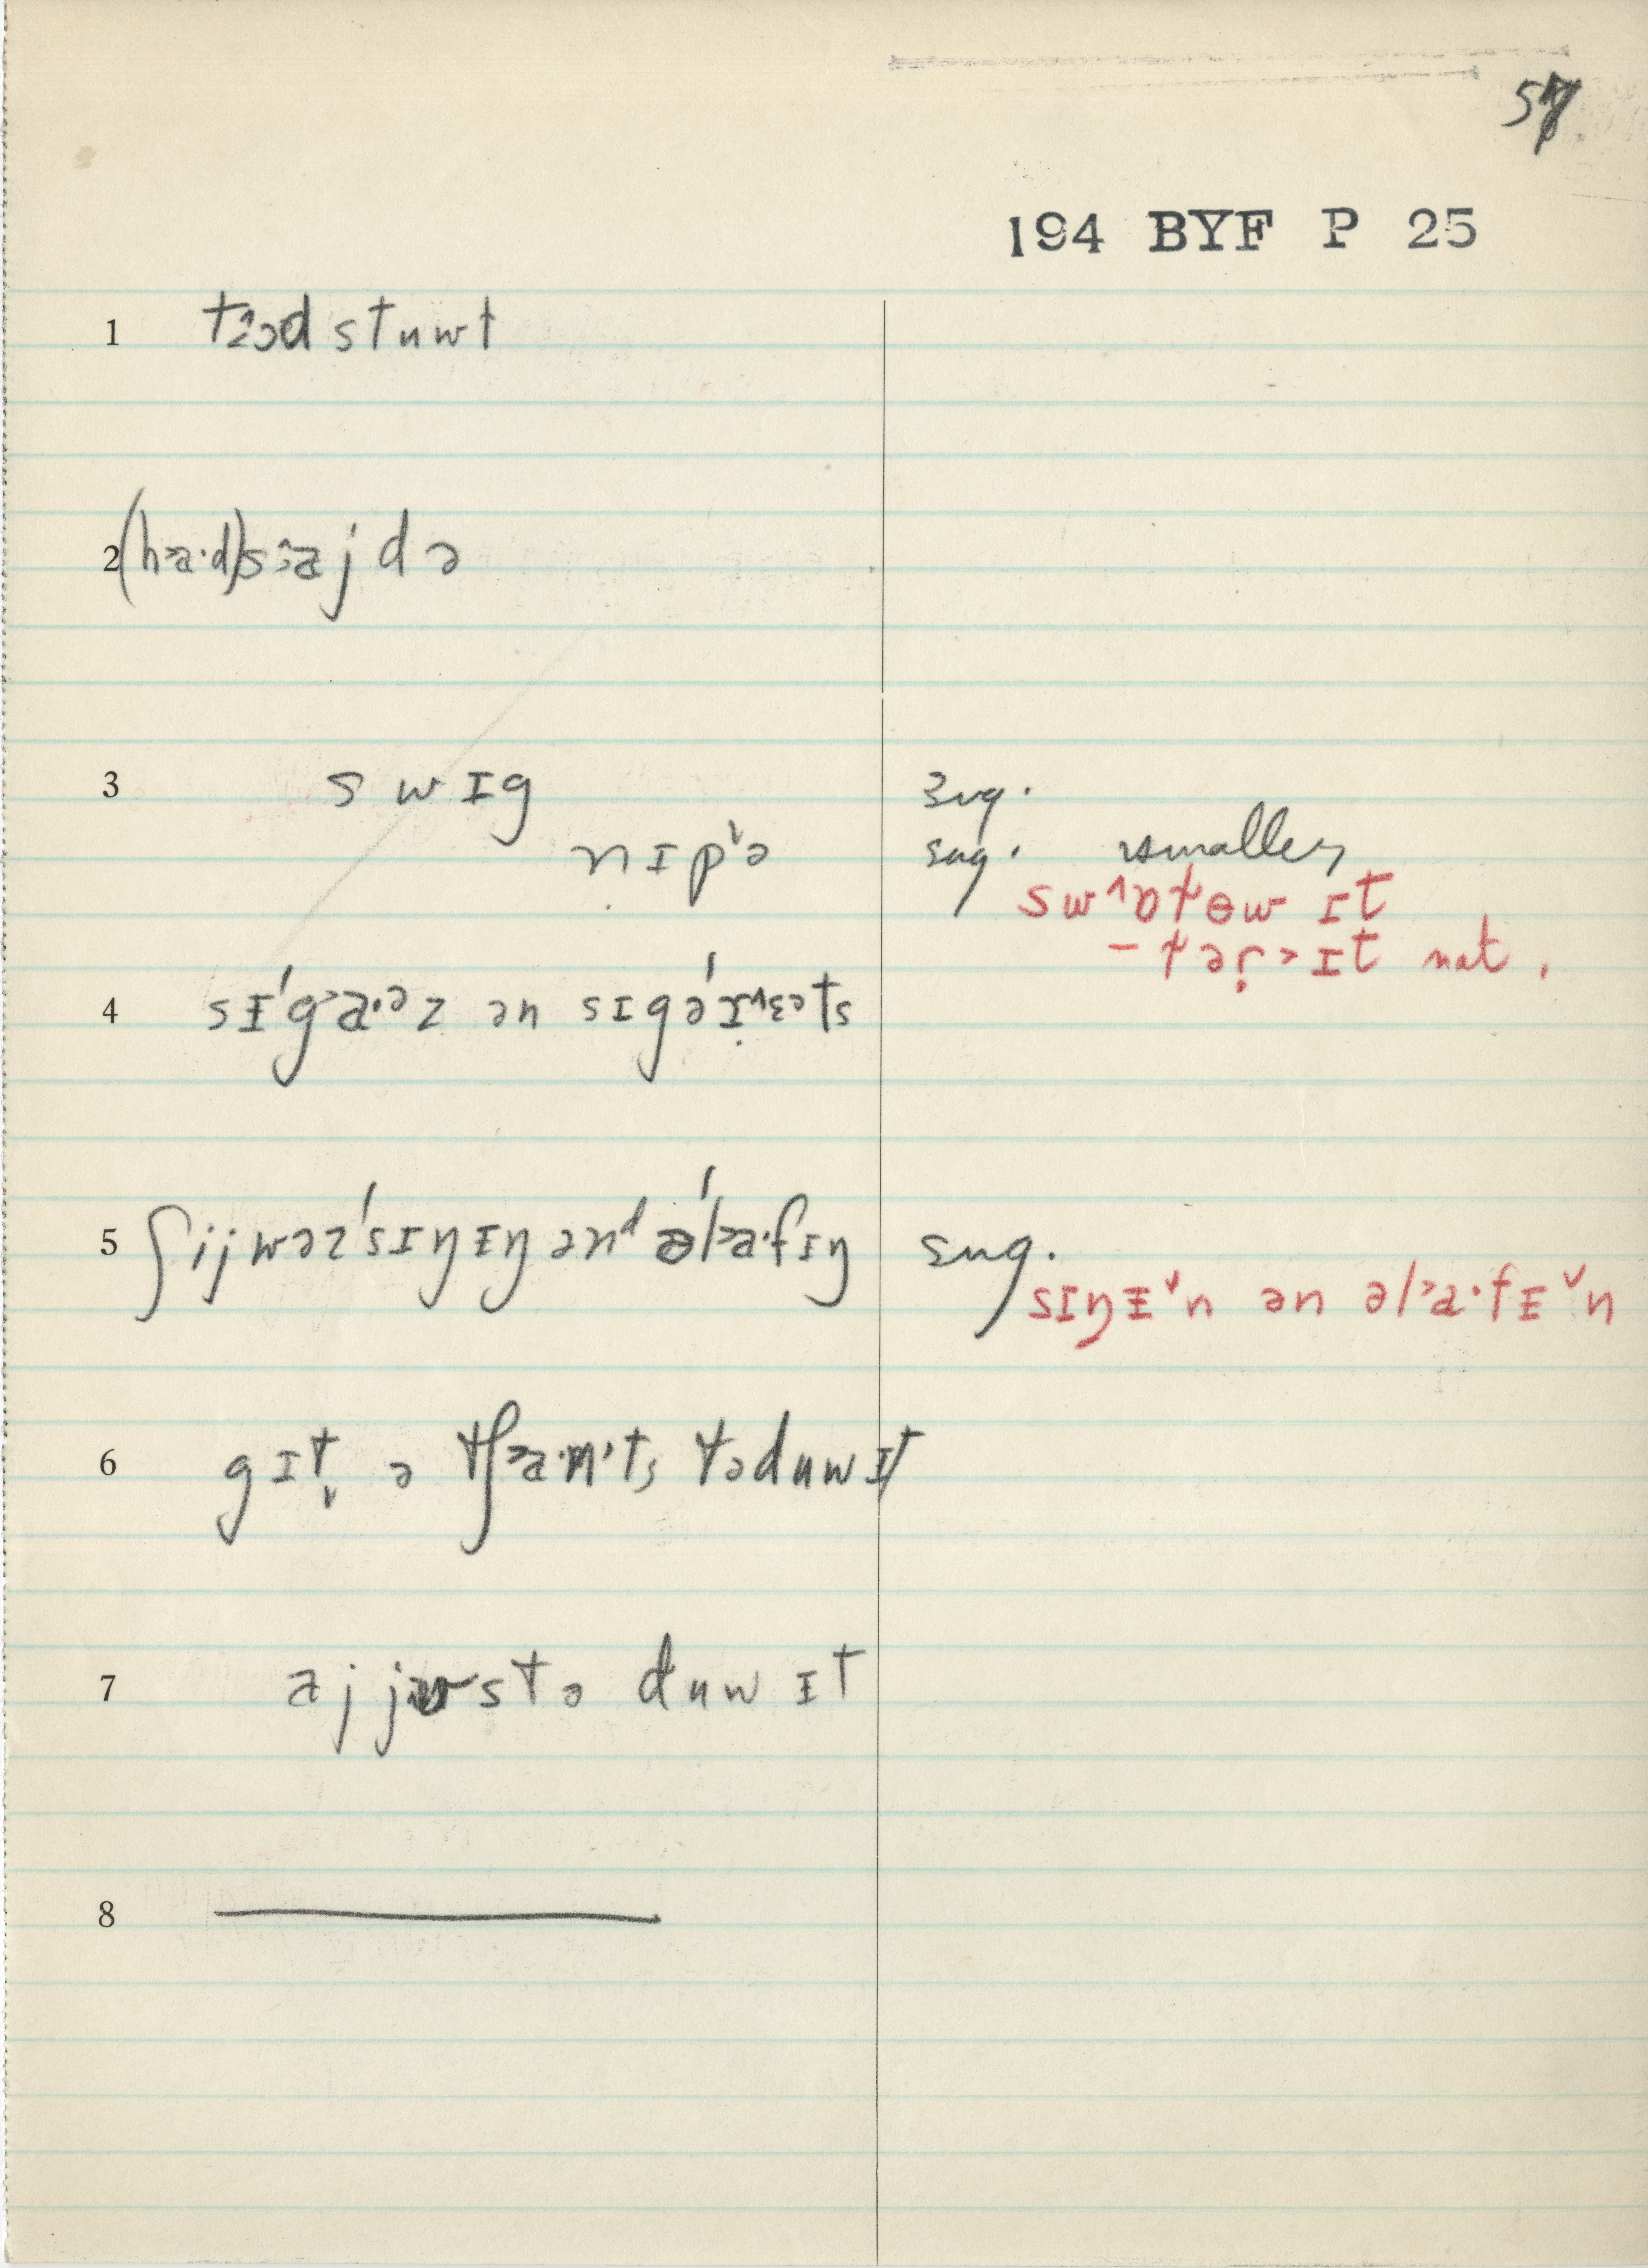 57
194 BYF P 25
1 tɔ˄ɔd stuwt
2 (h>a·d)s:ajdə
3 swɪg sug.
nɪp˅ə sug. smaller
sw˄ɒt̬ɵw ɪt
– t̬ər̩>ɪt nat.
4 sɪ́g>a·ᵊz ən sɪgər˄ɛᵊts
5 ʃijwəz'sɪŋɪŋ ənᵈ ə'l>a·fɪŋ sug.
sɪŋɪ˅n ən əl>a·fɪ˅n
6 gɪt̬ ə tʃ>a·n't, t̬əduwɪt
7 ajjustə duwɪt
8